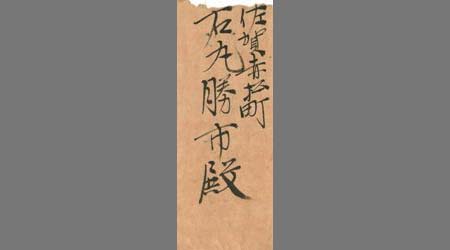 佐賀赤松町
石丸勝市殿